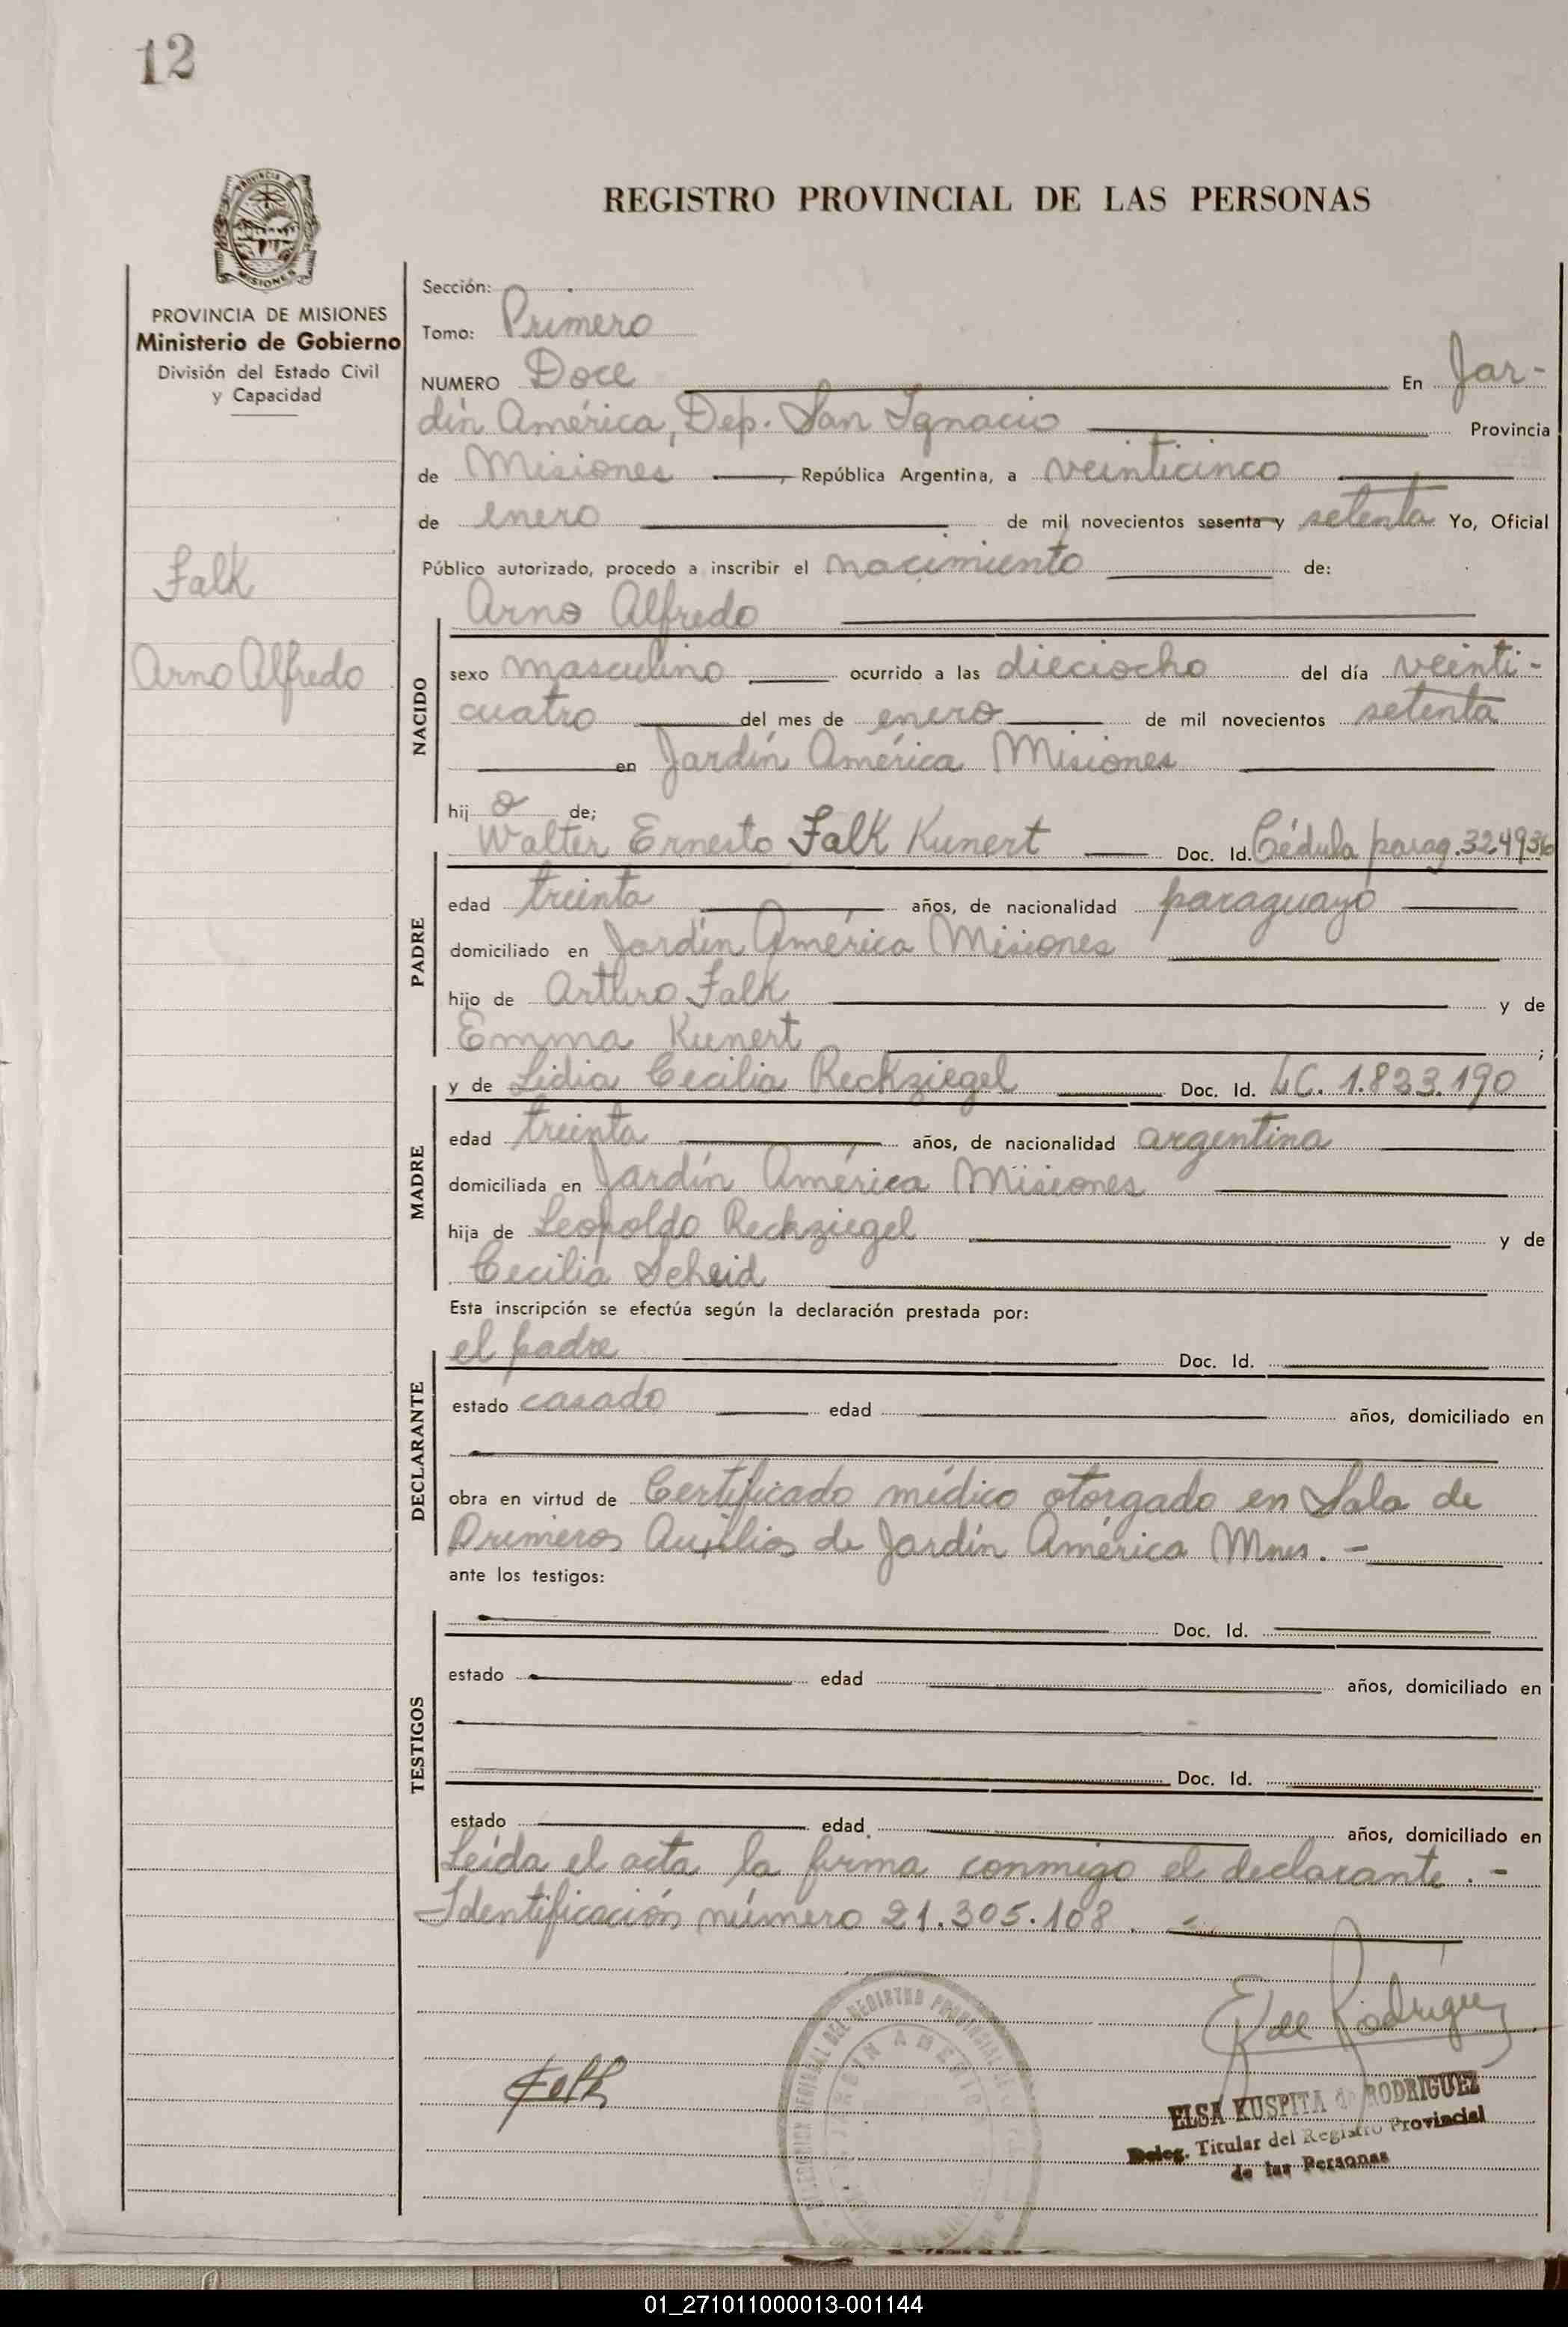 12
PROVINCIA DE
MISIONES
REGISTRO PROVINCIAL DE LAS PERSONAS
PROVINCIA DE MISIONES
Ministerio de Gobierno
División del Estado Civil
y Capacidad
Falk
Arno Alfredo
Sección:
Tomo: Primero
NUMERO Doce En Jar-
dín América, Dep. San Ignacio Provincia
de Misiones, República Argentina, a veinticinco
de enero de mil novecientos sesenta y setenta Yo, Oficial
Público autorizado, procedo a inscribir el nacimiento de:
Arno Alfredo
NACIDO
sexo masculino ocurrido a las dieciocho del día veinti-
cuatro del mes de enero de mil novecientos setenta
en Jardín América Misiones
hij o de;
PADRE
Walter Ernesto Falk Kunert Doc. Id. Cédula parag. 324936
edad treinta años, de nacionalidad paraguayo
domiciliado en Jardín América Misiones
hijo de Arthro Falk y de
Emma Kunert ;
MADRE
y de Lidia Cecilia Reckziegel Doc. Id. LC. 1.823.190
edad treinta años, de nacionalidad argentina
domiciliada en Jardín América Misiones
hija de Leopoldo Reckziegel y de
Cecilia Scheid
Esta inscripción se efectúa según la declaración prestada por:
DECLARANTE
el padre Doc. Id.
estado casado edad años, domiciliado en
obra en virtud de Certificado médico otorgado en Sala de
Primeros Auxilios de Jardín América Mnes. -
ante los testigos:
TESTIGOS
Doc. Id.
estado edad años, domiciliado en
Doc. Id.
estado edad años, domiciliado en
Leída el acta la firma conmigo el declarante. -
Identificación número 21.305.108. -
DEL REGISTRO PROVINCIAL
JARDIN AMERICA
E K de Rodriguez
ELSA KUSPITA de RODRIGUEZ
Deleg. Titular del Registro Provincial
de las Personas
01_271011000013-001144